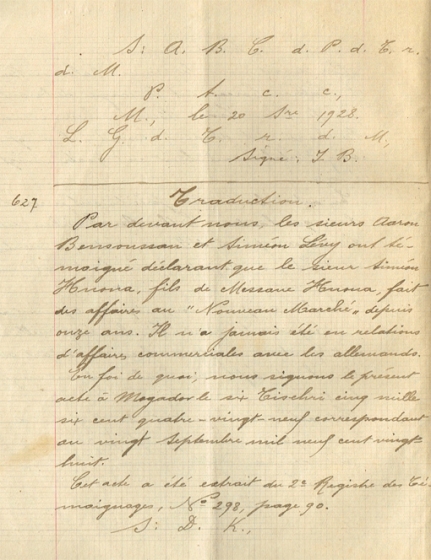 S: A. B. C. d. P. d. T. r.
d. M.
P. t. c. c.,
M., le 20 Sre 1928.
L. G. d. T. r. d. M,
Signé: J. B.
627
Traduction.
Par devant nous, les sieurs Aaron
Bensoussan et Siméon Lévy ont té-
moigné déclarant que le sieur Siméon
Hnona, fils de Messane Hnona, fait
des affaires au "Nouveau Marché" depuis
onze ans. Il n'a jamais été en relations
d'affaires commerciales avec les allemands.
En foi de quoi, nous signons le présent
acte à Mogador le six Tischri cinq mille
six cent quatre-vingt-neuf correspondant
au vingt Septembre mil neuf cent vingt-
huit.
Cet acte a été extrait du 2e Registre des Té-
moignages, No 298, page 90.
S: D. K.,